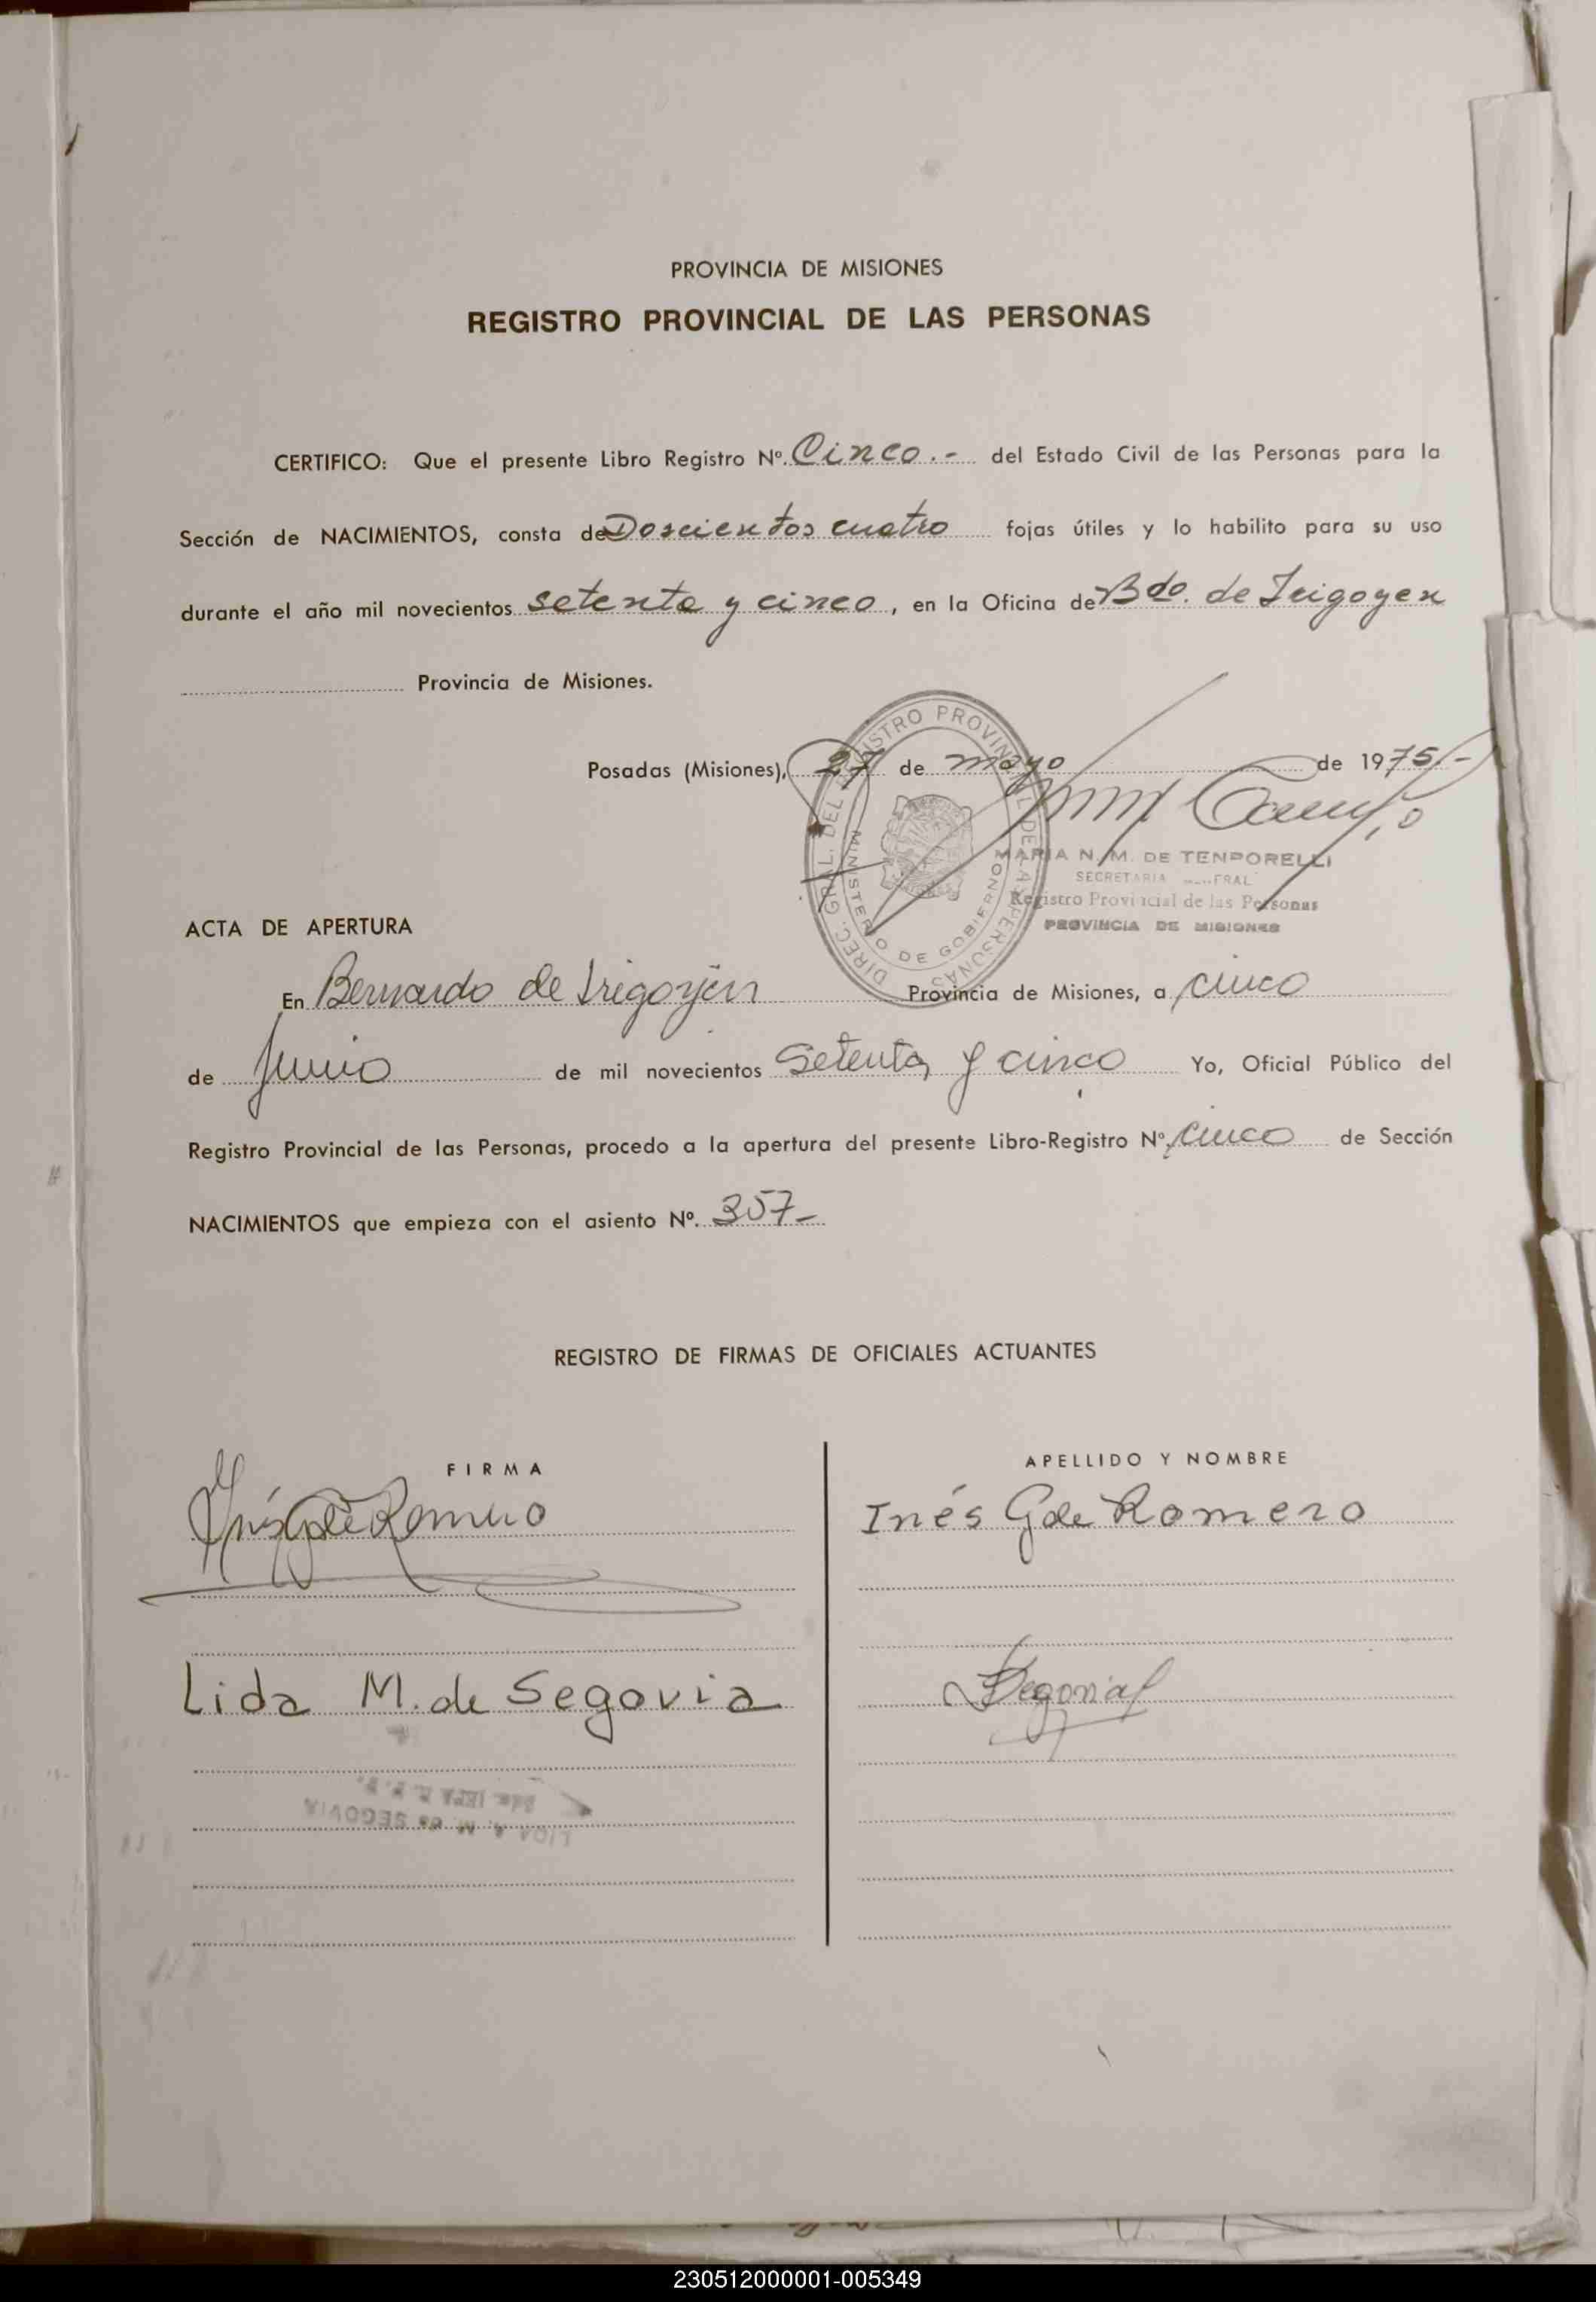 PROVINCIA DE MISIONES
REGISTRO PROVINCIAL DE LAS PERSONAS
CERTIFICO: Que el presente Libro Registro Nº Cinco.- del Estado Civil de las Personas para la
Sección de NACIMIENTOS, consta de Doscientos cuatro fojas útiles y lo habilito para su uso
durante el año mil novecientos setenta y cinco, en la Oficina de Bdo. de Irigoyen
Provincia de Misiones.
Posadas (Misiones), 27 de mayo de 1975.-
DIREC. GRAL. DEL REGISTRO PROVINCIAL DE LAS PERSONAS
MINISTERIO DE GOBIERNO
MARIA N. M. DE TENPORELLI
SECRETARIA
Registro Provincial de las Personas
PROVINCIA DE MISIONES
ACTA DE APERTURA
En Bernardo de Irigoyen Provincia de Misiones, a cinco
de Junio de mil novecientos Setenta y cinco Yo, Oficial Público del
Registro Provincial de las Personas, procedo a la apertura del presente Libro-Registro Nº cinco de Sección
NACIMIENTOS que empieza con el asiento Nº 357-
REGISTRO DE FIRMAS DE OFICIALES ACTUANTES
FIRMA
APELLIDO Y NOMBRE
Inés G de Romero
Inés G de Romero
Lida M. de Segovia
Segovia
LIDA A. M. de SEGOVIA
230512000001-005349